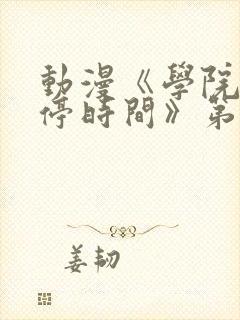 動漫《學院
停時間》第
姜韧